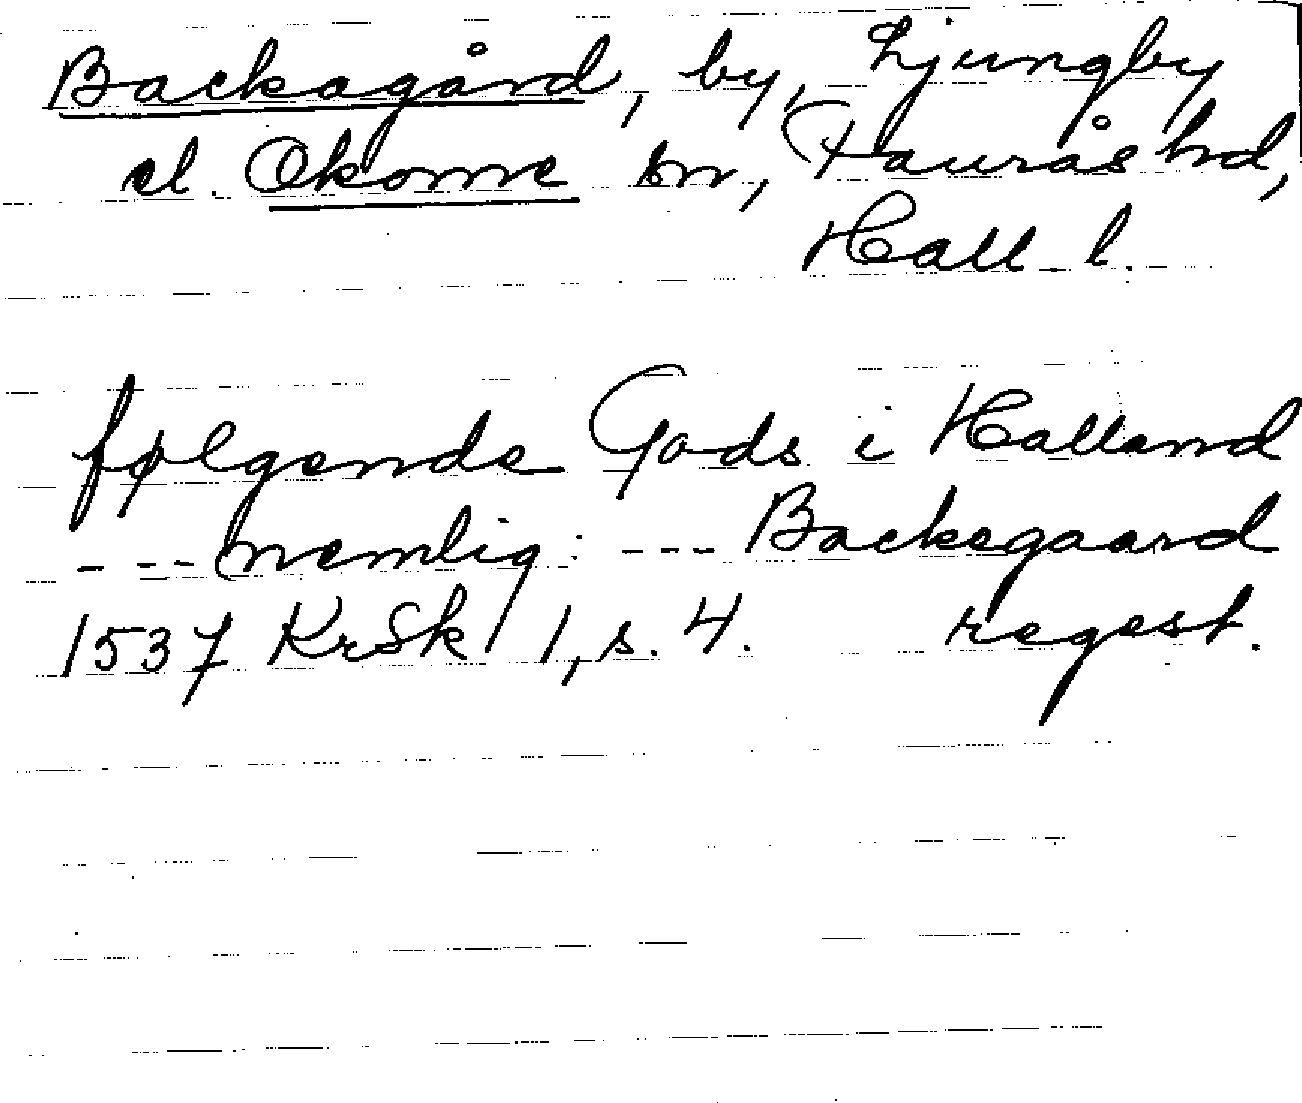 Backagård, by, Ljungby
el. Okome sn, Faurås hd,
Hall. l.
følgende Gods i Halland
--- nemlig: --- Backegaard
1537 KrSk 1, s. 4. regest.